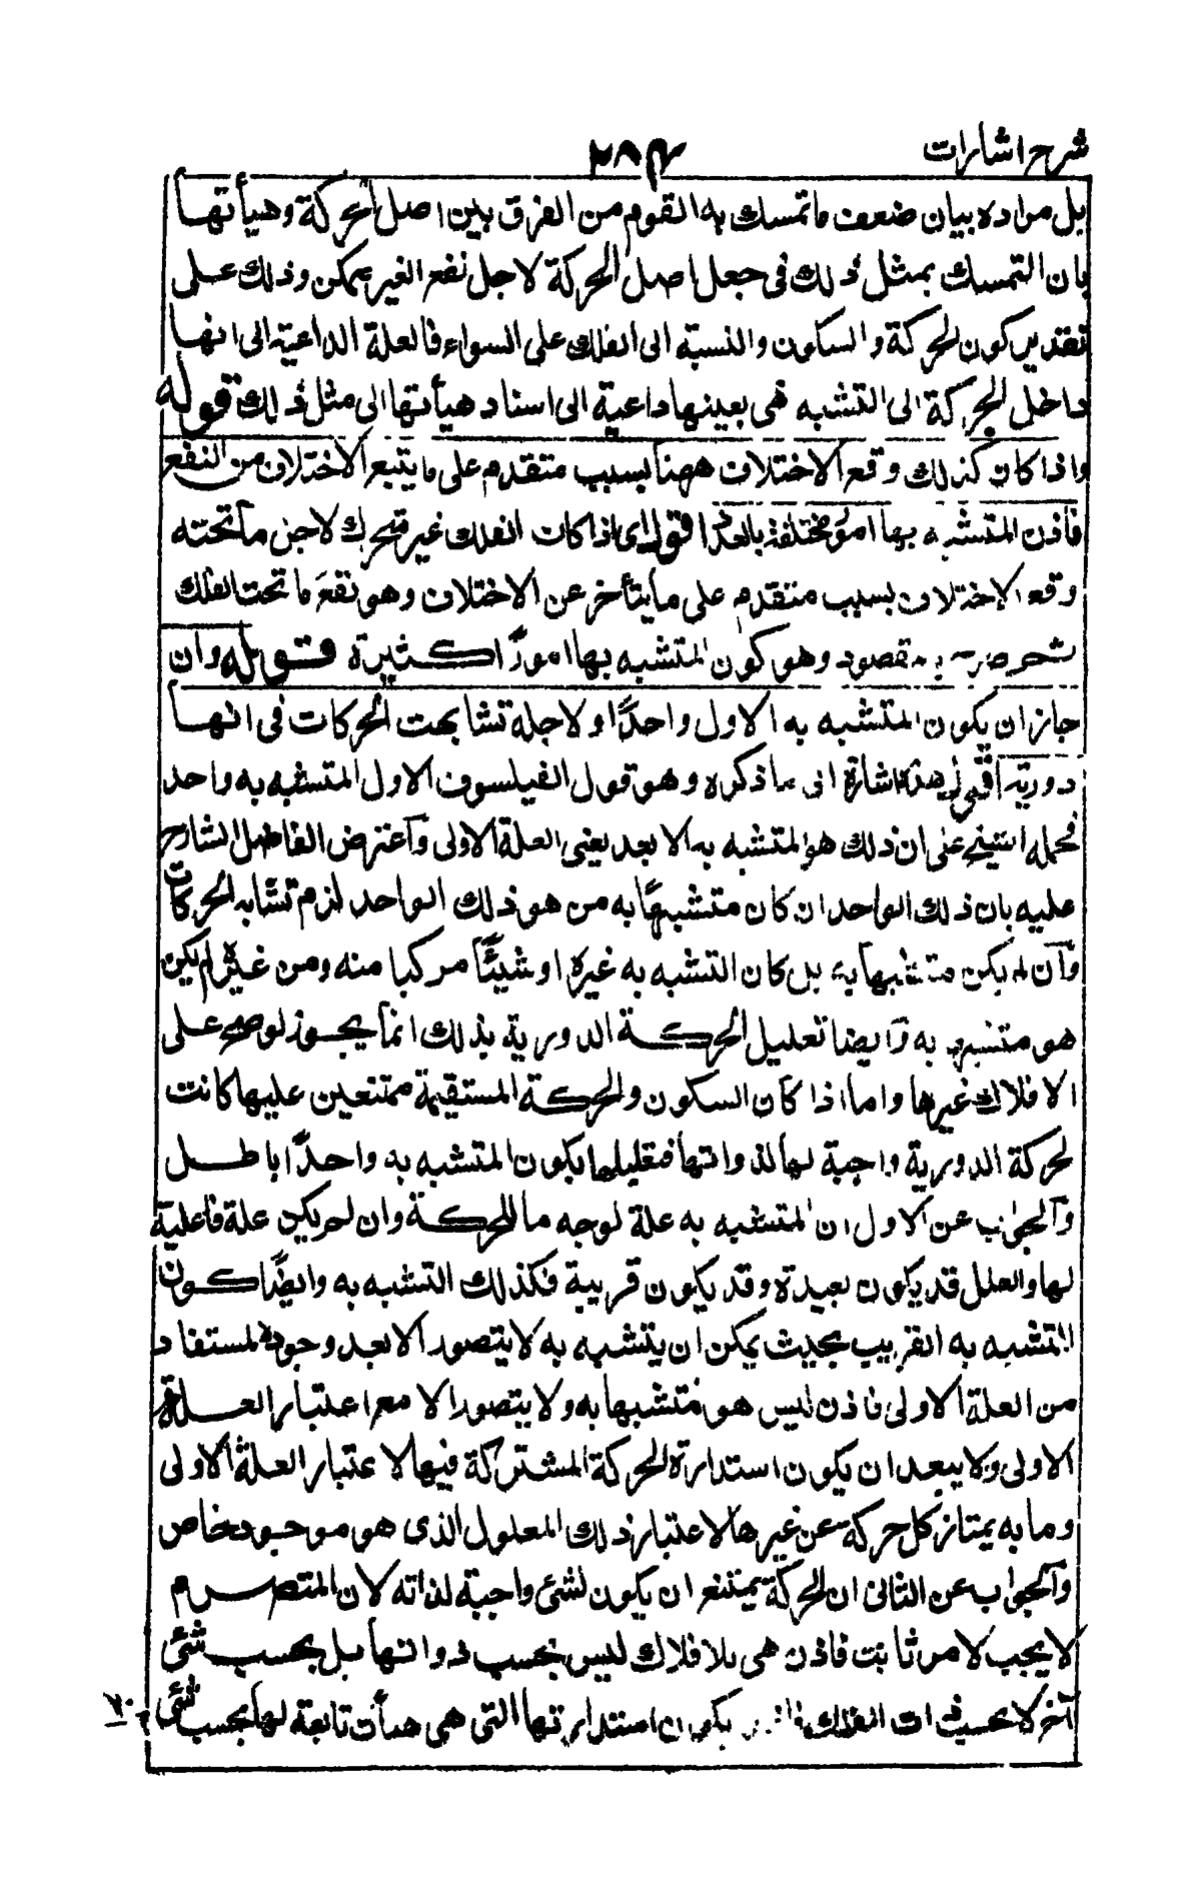 شرح اشارات ٢٨٤
بل مراده بيان ضعف ما تمسك به القوم من الفرق بين اصل الحركة وهيأتها
بان التمسك بمثل ذلك فى جعل اصل الحركة لاجل نفع الغير ممكن وذلك على
تقدير كون الحركة والسكون والنسبة الى الفلك على السواء فالعلة الداعية الى انها
داخل الحركة الى التشبه هى بعينها داعية الى اسناد هيأتها الى مثل ذلك قوله
واذا كان كذلك وقع الاختلاف ههنا بسبب متقدم على ما يتبع الاختلاف من النفع
فاذن المتشبه بها امور مختلفة بالعدد اقول اى اذا كان الفلك غير متحرك لاجل ما تحته
وقع الاختلاف بسبب متقدم على ما يتأخر عن الاختلاف وهو نفع ما تحت الفلك
وهو كون المتشبه بها امورًا كثيرة قوله وان
جاز ان يكون المتشبه به الاول واحدًا ولاجله تشابهت الحركات فى انها
دورية اقول هذه اشارة الى ما ذكره وهو قول الفيلسوف الاول المتشبه به واحد
فحمله الشيخ على ان ذلك هو المتشبه به الابعد يعنى العلة الاولى وآعترض الفاضل الشارح
عليه بان ذلك الواحد ان كان متشبهًا به من هو ذلك الواحد لزم تشابه الحركات
وآن لم يكن متشبها به بل كان التشبه به غيره او شيئًا مركبا منه ومن غيره لم يكن
هو متشبها به وآيضا تعليل الحركة الدورية بذلك انما يجوز لو صح على
الافلاك غيرها واما اذا كان السكون والحركة المستقيمة ممتنعين عليها كانت
الحركة الدورية واجبة لها لذواتها فتعليلها بكون المتشبه به واحدًا باطل
وآلجواب عن الاول ان المتشبه به علة لوجه ما للحركة وان لم يكن علة فاعلية
لها والعلل قد يكون بعيدة وقد يكون قريبة فكذلك التشبه به وايضًا كون
المتشبه به القريب بحيث يمكن ان يتشبه به لا يتصور الا بعد وجوده المستفاد
من العلة الاولى فاذن ليس هو متشبها به ولا يتصور الا مع اعتبار العلة
الاولى ولا يبعد ان يكون استدارة الحركة المشتركة فيها لاعتبار العلة الاولى
وما به يمتاز كل حركة عن غيرها لاعتبار ذلك المعلول الذى هو موجود خاص
وآلجواب عن الثانى ان الحركة يمتنع ان يكون لشئ واجبة لذاته لان المتصرم
لا يجب لامر ثابت فاذن هى للافلاك ليس بحسب ذواتها بل بحسب شئ
آخر لا بحسب ذات الفلك يكون استدارتها التى هى هيأت تابعة لها بحسب شئ